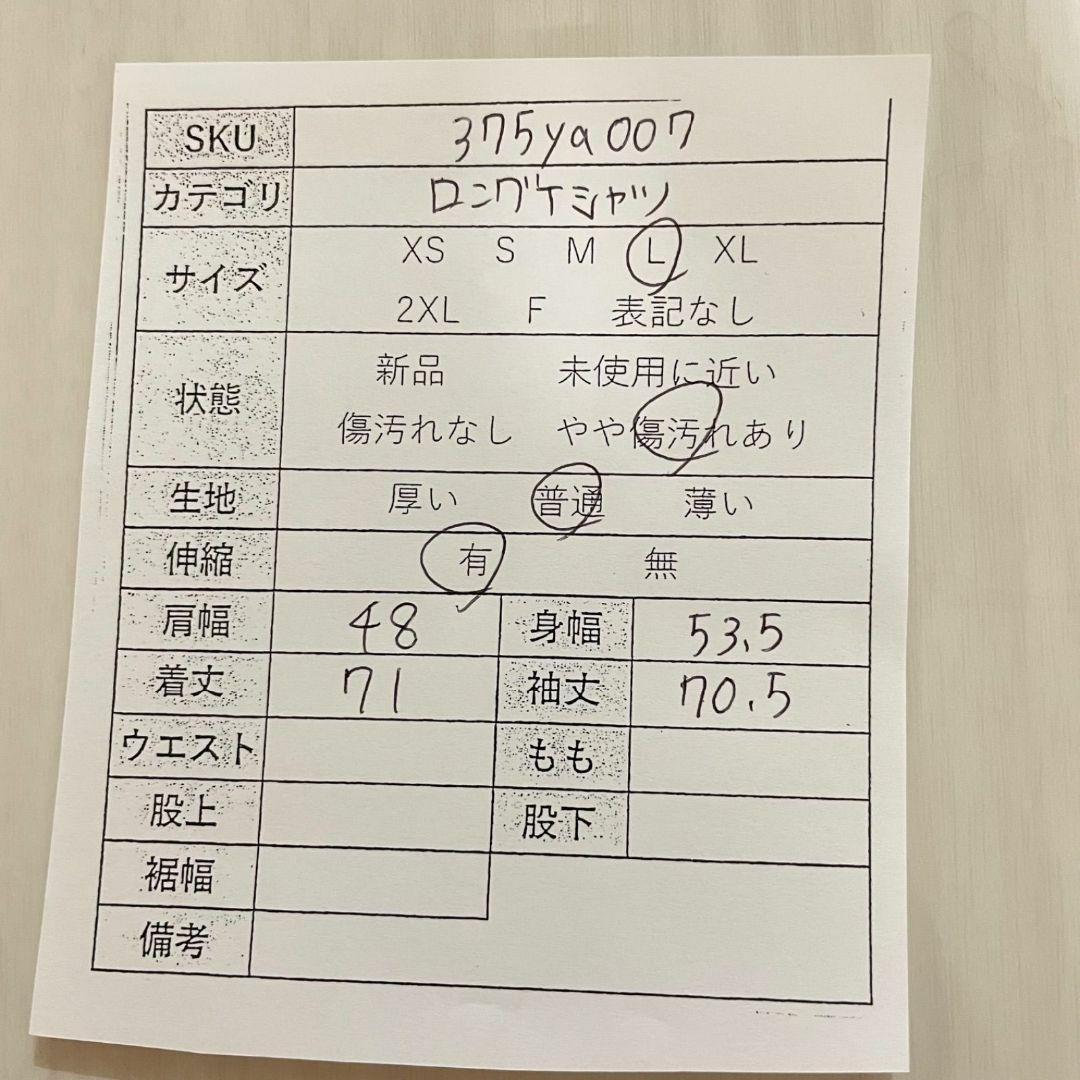 SKU 375ya007
カテゴリ ロングTシャツ
サイズ XS S M L XL
2XL F 表記なし
状態 新品 未使用に近い
傷汚れなし やや傷汚れあり
生地 厚い 普通 薄い
伸縮 有 無
肩幅 48 身幅 53.5
着丈 71 袖丈 70.5
ウエスト もも
股上 股下
裾幅
備考